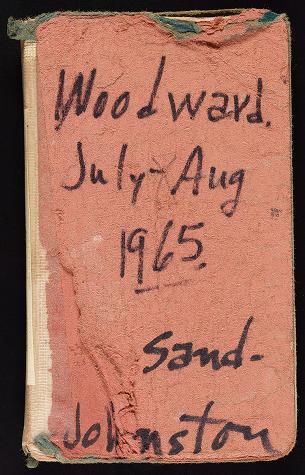 Woodward.
July-Aug
1965.
Sand-
Johnston